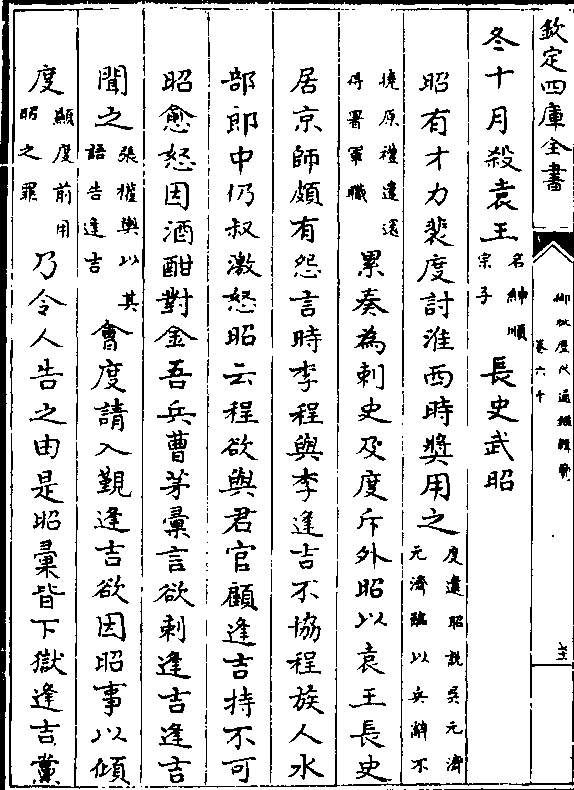 欽定四庫全書
御批歷代通鑑輯覽
卷六十
冬十月殺袁王名紳順宗子長史武昭
昭有才力裴度討淮西時奨用之度遣昭說吳元濟元濟臨以兵辭不
撓原禮遣還得署軍職累奏為刺史及度斥外昭以袁王長史
居京師頗有怨言時李程與李逢吉不協程族人水
部郎中仍叔激怒昭云程欲與君官顧逢吉持不可
昭愈怒因酒酣對金吾兵曹茅彙言欲刺逢吉逢吉
聞之張權輿以其語告逢吉會度請入覲逢吉欲因昭事以傾
度顯度前用昭之罪乃令人告之由是昭彙皆下獄逢吉黨